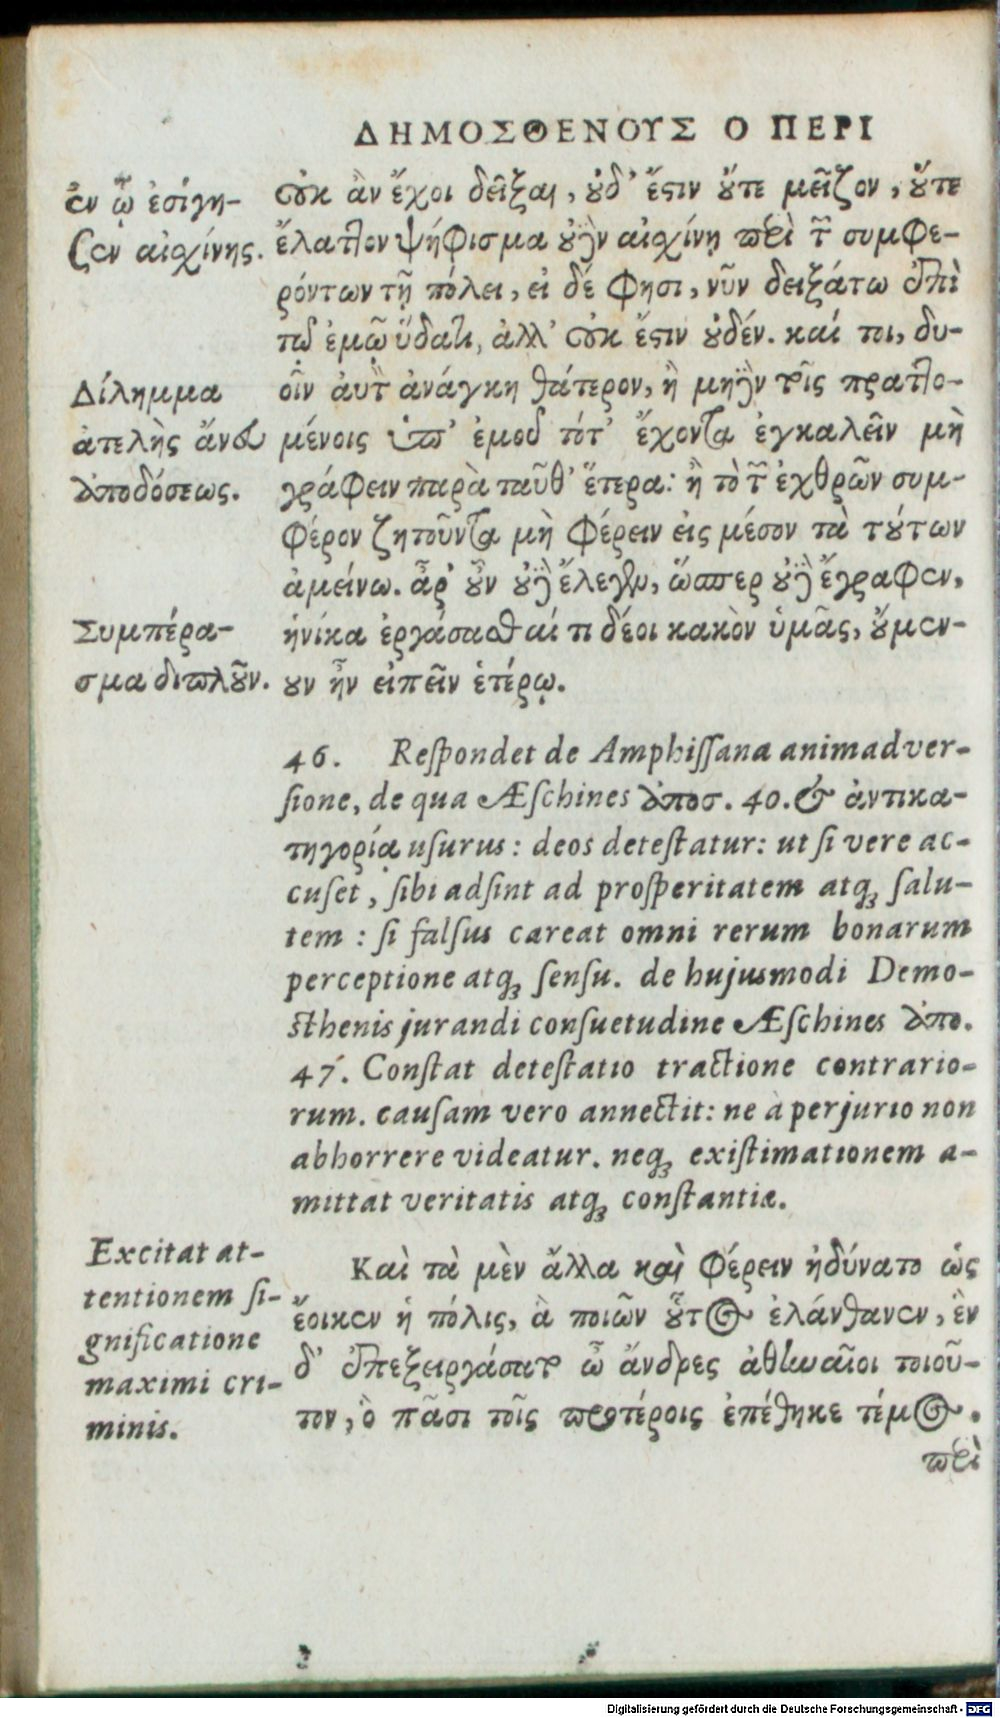 ΔΗΜΟΣΘΕΝΟΥΣ Ο ΠΕΡΙ
ἐν ᾧ ἐσίγη-
σεν αἰχίνης.
οὐκ ἂν ἔχοι δεῖξαι, ȣ̓δ' ἔϛιν ȣ̓́τε μεῖζον, ȣ̓́τε
ἔλαττον ψήφισμα ȣ̓δὲν αἰχίνῃ περὶ τῶν συμφε-
ρόντων τῇ πόλει, εἰ δέ φησι, νῦν δειξάτω ἐπὶ
τῷ ἐμῷ ὕδατι, ἀλλ' οὐκ ἔϛιν ȣ̓δέν. καί τοι, δυ-
οῖν ἀυτὸν ἀνάγκη θάτερον, ἢ μηδὲν τοῖς πραττο-
μένοις ὑπ' ἐμοῦ τότ' ἔχοντα ἐγκαλεῖν μὴ
γράφειν παρὰ ταῦθ' ἕτερα: ἢ τὸ τῶν ἐχθρῶν συμ-
φέρον ζητοῦντα μὴ φέρειν εἰς μέσον τὰ τȣ́των
ἀμείνω. ἆρ' ȣ̓͂ν ȣ̓δὲ ἔλεγεν, ὥσπερ ȣ̓δὲ ἔγραφεν,
ἡνίκα ἐργάσασθαί τι δέοι κακὸν ὑμᾶς, ȣ̓́μεν-
ȣν ἦν εἰπεῖν ἑτέρῳ.
Δίλημμα
ἀτελὴς ἄνευ
ἀποδόσεως.
Συμπέρα-
σμα διπλȣ͂ν.
46. Reſpondet de Amphiſſana animadver-
ſione, de qua Æſchines ἀποσ. 40. & ἀντικα-
τηγορίᾳ uſurus: deos deteſtatur: ut ſi vere ac-
cuſet, ſibi adſint ad proſperitatem atqꝫ ſalu-
tem : ſi falſus careat omni rerum bonarum
perceptione atqꝫ ſenſu. de hujusmodi Demo-
ſthenis jurandi conſuetudine Æſchines ἀπο.
47. Conſtat deteſtatio tractione contrario-
rum. cauſam vero annectit: ne à perjurio non
abhorrere videatur. neqꝫ exiſtimationem a-
mittat veritatis atqꝫ conſtantiæ.
Excitat at-
tentionem ſi-
gnificatione
maximi cri-
minis.
Καὶ τὰ μὲν ἄλλα καὶ φέρειν ἠδύνατο ὡς
ἔοικεν ἡ πόλις, ἃ ποιῶν ȣ̔͂τος ἐλάνθανεν, ἓν
δ' ἐπεξειργάσατο ὦ ἄνδρες ἀθηναῖοι τοιοῦ-
τον, ὃ πᾶσι τοῖς προτέροις ἐπέθηκε τέλος.
περὶ
Digitalisierung gefördert durch die Deutsche Forschungsgemeinschaft - DFG